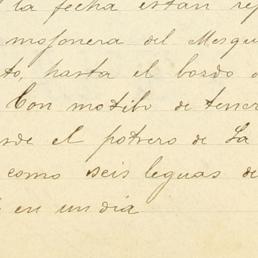 la fecha estan rep
mojonera del Mesqui
to, hasta el bordo d
Con motibo de tener
sde el potrero de La
como seis leguas de
en un dia